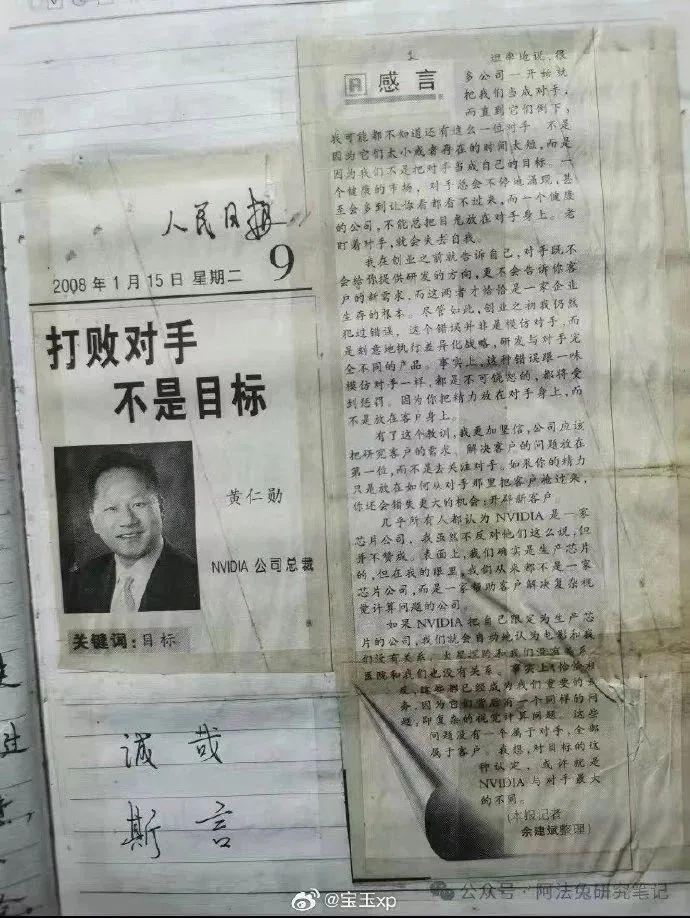 人民日报
9
2008年1月15日 星期二
打败对手
不是目标
黄仁勋
NVIDIA 公司总裁
关键词：目标
诚哉
斯言
感言
坦率地说，很
多公司一开始就
把我们当成对手，
而直到它们倒下，
我可能都不知道还有这么一位对手 不是
因为它们太小或者存在的时间太短，而是
因为我们不是把对手当成自己的目标。一
个健康的市场，对手总会不停地涌现，甚
至会多到让你看都看不过来，而一个健康
的公司，不能总把目光放在对手身上。老
盯着对手，就会失去自我。
我在创业之前就告诉自己，对手既不
会给你提供研发的方向，更不会告诉你客
户的新需求，而这两者才恰恰是一家企业
生存的根本。尽管如此，创业之初我仍然
犯过错误，这个错误并非是模仿对手，而
是刻意地执行差异化战略，研发与对手完
全不同的产品。事实上，这种错误跟一味
模仿对手一样，都是不可饶恕的，都将受
到惩罚。因为你把精力放在对手身上，而
不是放在客户身上。
有了这个教训，我更加坚信，公司应该
把研究客户的需求、解决客户的问题放在
第一位，而不是去关注对手。如果你的精力
只是放在如何从对手那里把客户抢过来，
你还会错失更大的机会：开辟新客户。
几乎所有人都认为NVIDIA是一家
芯片公司，我虽然不反对他们这么说，但
并不赞成。表面上，我们确实是生产芯片
的，但在我的眼里，我们从来都不是一家
芯片公司，而是一家帮助客户解决复杂视
觉计算问题的公司。
如果NVIDIA把自己限定为生产芯
片的公司，我们就会自动地认为电影和我
们没有关系，火星探险和我们没有关系，
医院和我们也没有关系。事实上，恰恰相
反，这些都已经成为我们重要的业
务，因为它们背后有一个同样的问
题，即复杂的视觉计算问题。这些
问题没有一个属于对手，全部
属于客户。我想，对目标的这
种认定，或许就是
NVIDIA与对手最大
的不同。
(本报记者
余建斌整理)
@宝玉xp
公众号·阿法兔研究笔记